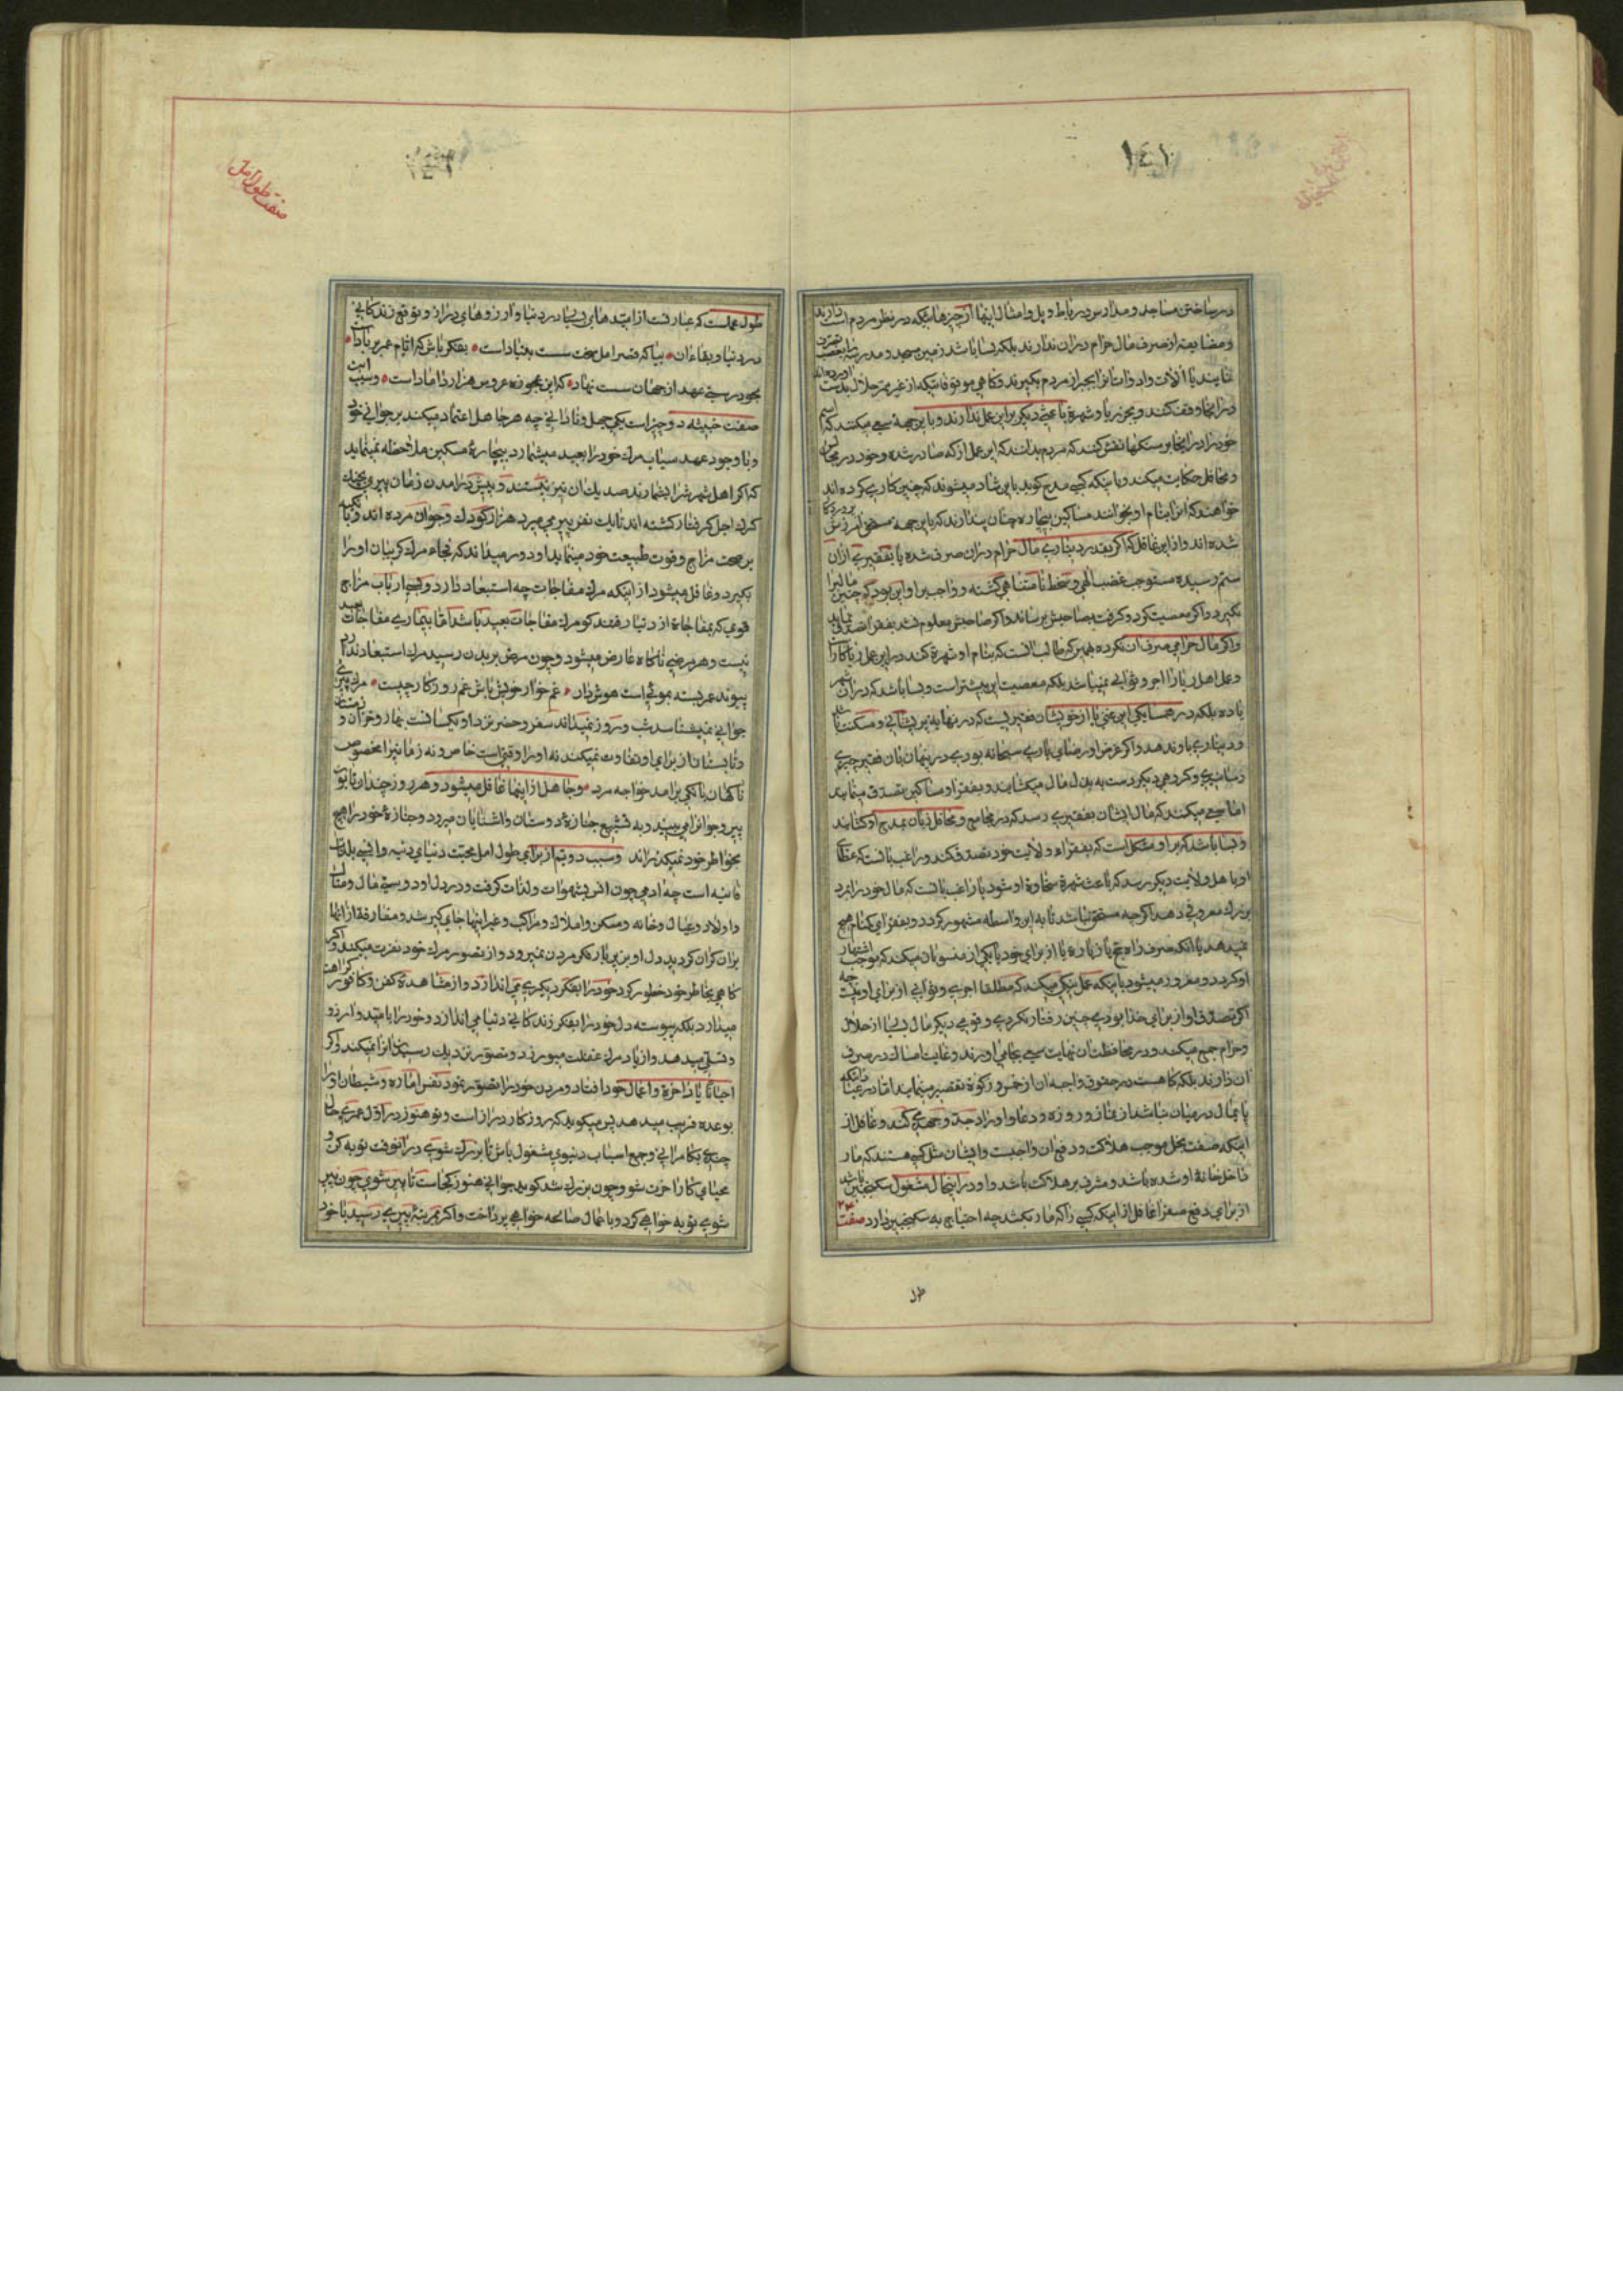 ١٤١
در ساختن مساجد و مدارس و رباط و پل و امثال اینها از چیزهائیکه در نظر مردم است دارند
و مضایقه از صرف مال حرام در ان ندارند بلکه بسا باشد زمین مسجد و مدرسه را بغصب
نمایند یا آلات و ادوات انرا بجبر از مردم بگیرند و کاهی موقوفاتیکه از غیر ممر حلال بدست اورده اند
در انجا وقف کنند و بجز ریا و شهرة باعثی دیگر بر این عمل ندارند و باین جهه سعی میکنند که اسم
خود را در انجا بر سنکها نقش کنند که مردم بدانند که این عمل از که صادر شده و خود در مجالس
و محافل حکایت میکنند و باینکه کسی مدح کوید باین شاد میشوند که چنین کاری کرده اند
خواهند که انرا بنام او بخوانند مساکین بیچاره چنان پندارند که باین جهه مستحق امرزش
شده اند و از این غافل که اکر بقدر دیناری مال حرام در ان صرف شده یا بفقیری از ان
ستم رسیده مستوجب غضب الهی و سخط نامتناهی کشته و واجب بر او این بود که چنین مالیرا
نگیرد و اکر معصیت کرد و کرفت بصاحبش برساند و اکر صاحبش معلوم نشد بفقرا تصدق نماید
و اکر مال حرامی صرف ان نکرده همین که طالب انست که بنام او شهرة کند در این عمل ریاکار است
و عمل اهل ریا را اجر و ثوابی نمیباشد بلکه معصیت این بیشتر است و بسا باشد که در ان شهر
یا ده بلکه در همسایکی این غنی یا از خویشان فقیریست که در نهایه پریشانی و مسکنت
و دیناری باو ندهد و اکر غرض او رضای باری سبحانه بودی در پنهان بان فقیر چیزی
رسانیدی و کروهی دیکر دست به بذل مال میکشایند و بفقرا و مساکین تصدق مینمایند
اما سعی میکنند که مال ایشان بفقیری رسد که در مجامع و محافل زبان بمدح او کشایند
و بسا باشد که بر او مشکل است که بفقراء ولایت خود تصدق کند و راغب بانست که عطای
او باهل ولایت دیکر رسد که باعث شهرة سخاوة او شود یا راغب بانست که مال خود را بمرد
بزرک معروفی دهد اکرچه مستحق نباشد تا به این واسطه مشهور کردد و بفقرای کمنام هیچ
نمیدهد یا انکه صرف راه حج یا زیاره یا از برای خود یا یکی از منسوبان میکند که موجب اشتهار
او کردد و مغرور میشود باینکه عمل نیکی میکند که مطلقا اجری و ثوابی از برای او نیست چه
اکر تصدق او از برای خدا بودی چنین رفتار نکردی و قومی دیکر مال بسیار از حلال
و حرام جمع میکنند و در محافظت ان نهایت سعی بجامی اورند و غایت امساک در صرف
ان دارند بلکه کاهست در حقوق واجبه ان از خمس و زکوة تقصیر مینمایند اما در عباداتیکه
پای مال در میان نباشد از نماز و روزه و دعا و اوراد جد و جهدی کنند و غافل از
اینکه صفت بخل موجب هلاکت و دفع ان واجبست و ایشان مثل کسی هستند که مار
داخل خانهٔ او شده باشد و مشرف بر هلاکت باشد و او در اینحال مشغول سکنجبین باشد
از برای دفع صفرا غافل از اینکه کسی را که مار بکشد چه احتیاج به سکنجبین دارد صفت
طول
صفت طول امل
طول امل است که عبارتست از امیدهای بسیار در دنیا و ارزوهای دراز و توقع زندکانی
در دنیا و بقاء ان بیا که قصر امل سخت سست بنیاد است بفکر باش که ایام عمر بر باد است
مجو درستی عهد از جهان سست نهاد که این عجوزه عروس هزار داماد است و سبب این
صفت خبیثه دو چیز است یکی جهل و نادانی چه هر جاهل اعتماد میکند بر جوانی خود
و با وجود عهد شباب مرک خود را بعید میشمارد بیچارهٔ مسکین ملاحظه نمینماید
که اکر اهل شهر شرا بشمارند صد یک ان پیر نیستند و پیش از امدن زمان پیری بچنک
کرک اجل کرفتار کشته اند تا یک نفر پیر می میرد هزار کودک و جوان مرده اند و یا تکیه
بر صحت مزاج و قوت طبیعت خود مینماید و دور میداند که فجاء مرک کریبان او را
بکیرد و غافل میشود از اینکه مرک مفاجات چه استبعاد دارد و بسیار باب مزاج
قوی که بمفاجاة از دنیا رفتند کو مرک مفاجات بعید باشد اما بیماری مفاجات بعید
نیست و هر مرضی ناکاه عارض میشود و چون مرض بر بدن رسید مرک استبعاد ندارد
پیوند عمر بسته بموئی است هوش دار غم خوار خویش باش غم روزکار چیست مرک پیری
جوانی نمیشناسد شب و روز نمیداند سفر و حضر نزد او یکسانست بهار و خزان و زمستان
و تابستان از برای او تفاوت نمیکند نه او را وقتیست خاص و نه زمانیرا مخصوص
ناکهان بانکی برامد خواجه مرد و جاهل از اینها غافل میشود و هر روز چندان تابوت
پیر و جوانرا می بیند و به تشییع جنازهٔ دوستان و اشنایان میرود و جنازهٔ خود را هیچ
بخواطر خود نمیکذراند و سبب دویم از برای طول امل محبت دنیای دنیه و انس بلذات
فانیه است چه ادمی چون انس بشهوات و لذات کرفت و در دل او دوستی مال و منال
و اولاد و عیال و خانه و مسکن و املاک و مراکب و غیر اینها جای کیر شد و مفارقة از انها
بر ان کران کردید دل او بزیر بار فکر مردن نمیرود و از تصور مرک خود نفرت میکند و اکر
کاهی بخاطر خود خطور کرد خود را بفکر دیکری می اندازد و از مشاهدهٔ کفن و کافور کراهت
میدارد بلکه پیوسته دل خود را بفکر زندکانی دنیا می اندازد و خود را بامید و ارزو
و تسلی میدهد و از یاد مرک غفلت میورزد و تصور نزدیک رسیدن انرا نمیکند و اکر
احیانا یاد اخرة و اعمال خود افتاد و مردن خود را تصور نمود نفس اماره و شیطان او را
بوعده فریب میدهد پس میکوید که روزکار دراز است و تو هنوز در اول عمری حال
چندی بکامرانی و جمع اسباب دنیوی مشغول باش تا بزرک شوی در انوقت توبه کن و
مهیای کار اخرت شو و چون بزرک شد کوید جوانی هنوز کجاست تا پیر شوی چون پیر
شوی توبه خواهی کرد و باعمال صالحه خواهی پرداخت و اکر بمرتبهٔ پیری رسید با خود